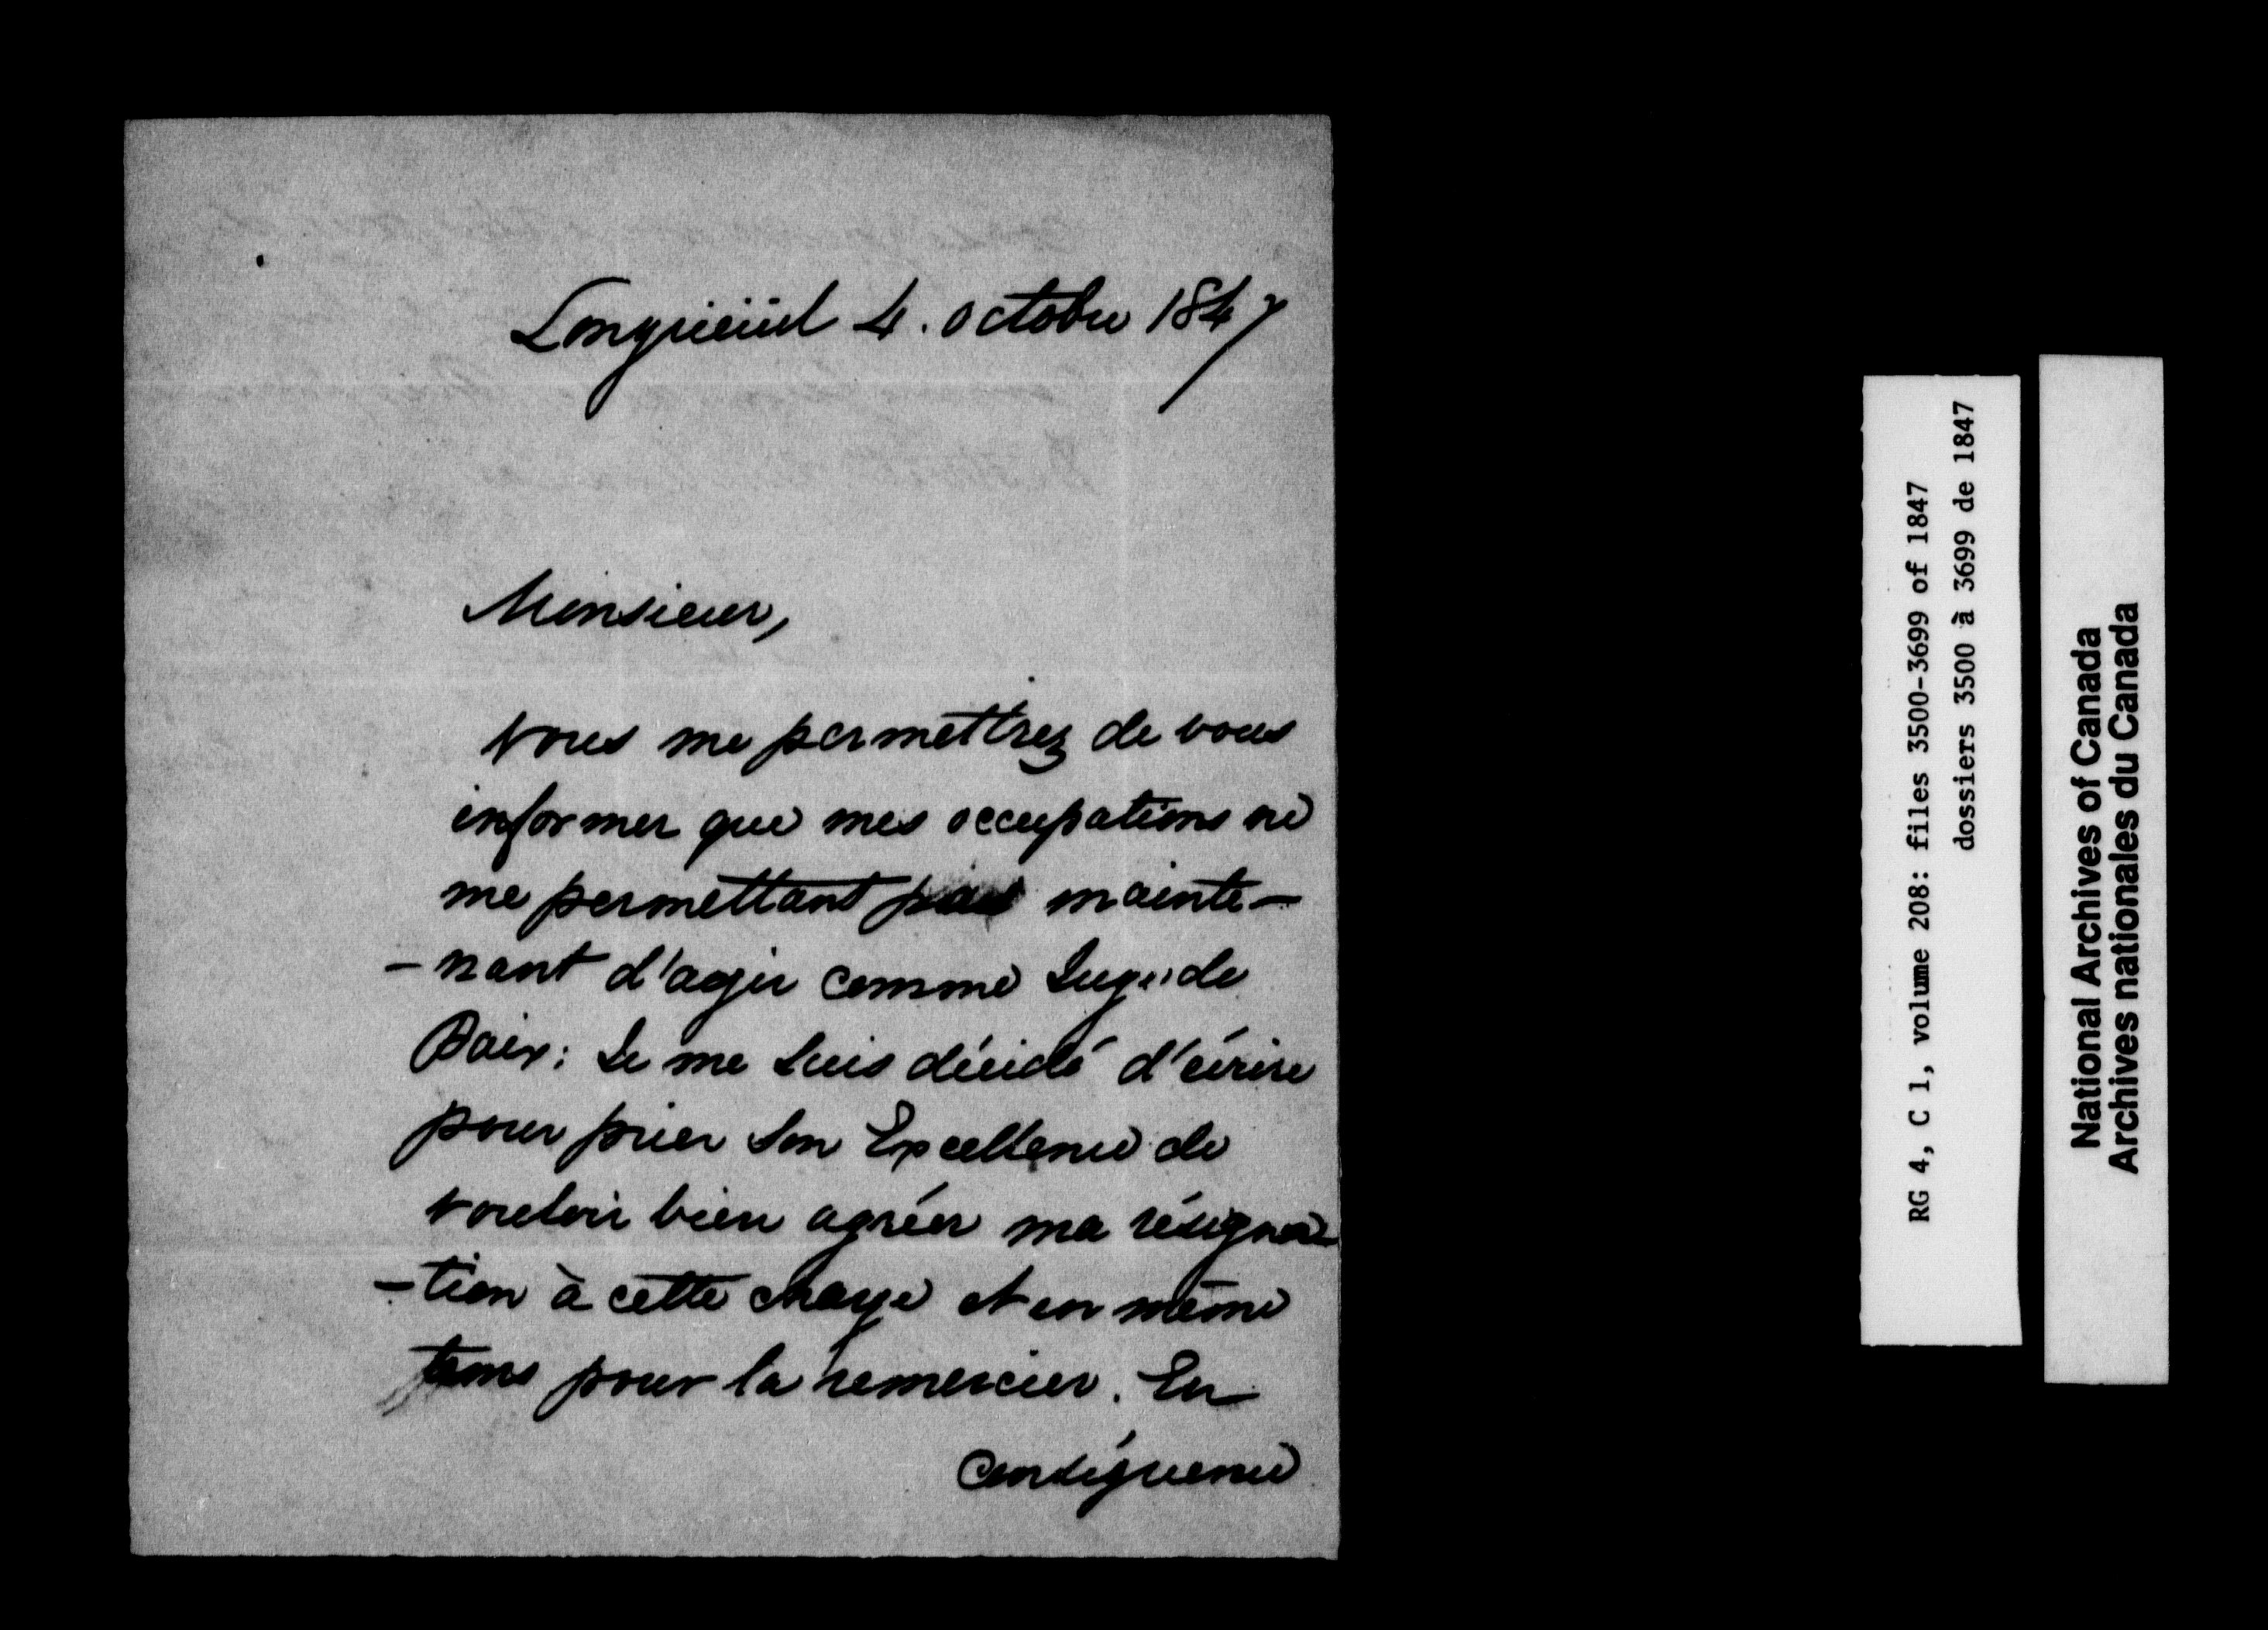 Longueüil 4. octobre 1847
Monsieur,
Vous me permettrez de vous
informer que mes occupations ne
me permettant pas mainte-
-nant d'agir comme Juge de
Paix; Je me suis décidé d'écrire
pour prier Son Excellence de
vouloir bien agréer ma résigna-
-tion à cette charge et en même
tems pour la remercier. En
conséquence
RG 4, C 1, volume 208: files 3500-3699 of 1847
dossiers 3500 à 3699 de 1847
National Archives of Canada
Archives nationales du Canada